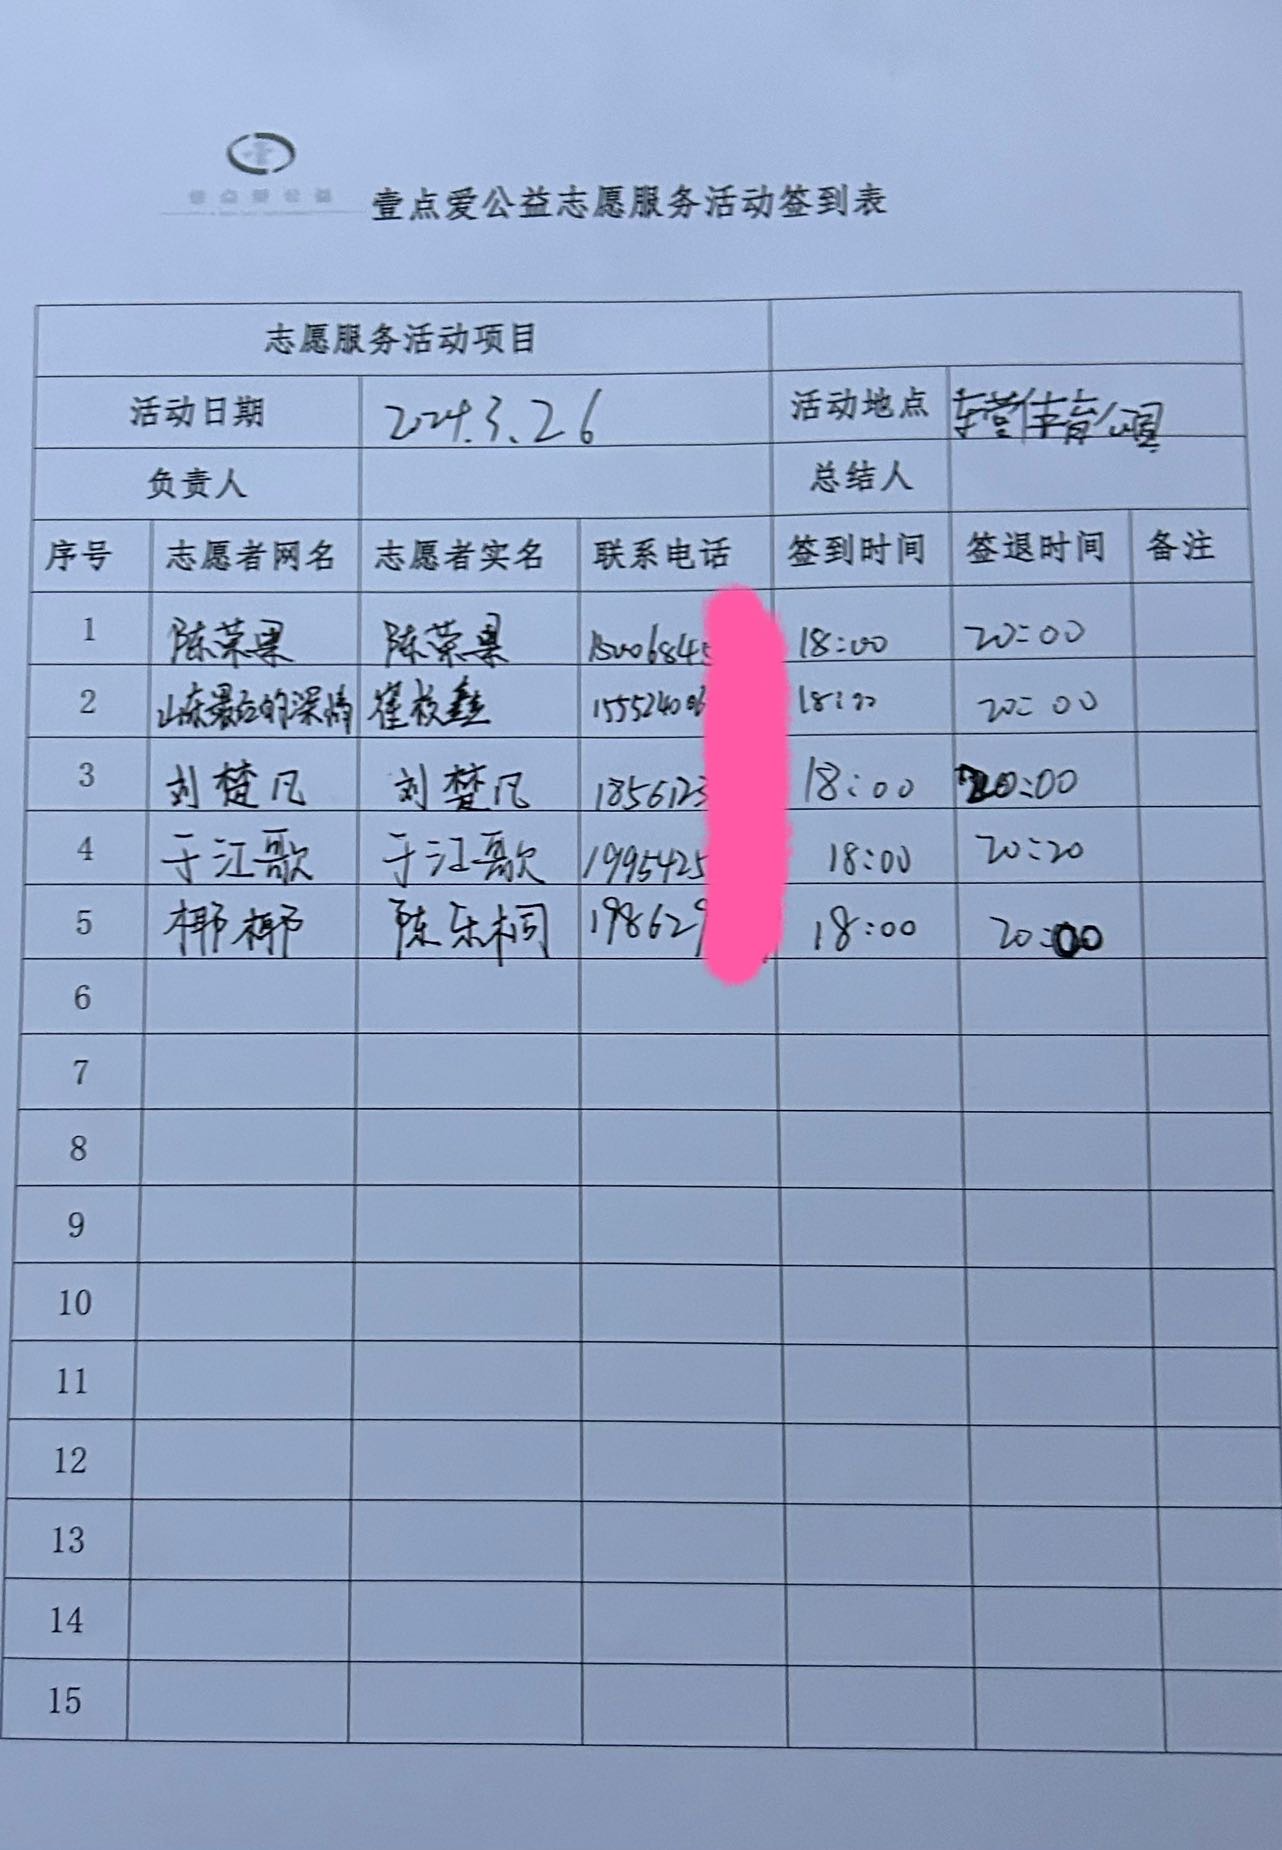 壹点爱公益
壹点爱公益志愿服务活动签到表
志愿服务活动项目
活动日期 2024.3.26 活动地点 东营体育公园
负责人 总结人
序号 志愿者网名 志愿者实名 联系电话 签到时间 签退时间 备注
1 陈荣果 陈荣果 15006845 18:00 20:00
2 山东最后的深情 崔枚鑫 15552406 18:00 20:00
3 刘楚凡 刘楚凡 1856123 18:00 20:00
4 于江歌 于江歌 1995425 18:00 20:20
5 椰椰 陈乐桐 198629 18:00 20:00
6
7
8
9
10
11
12
13
14
15